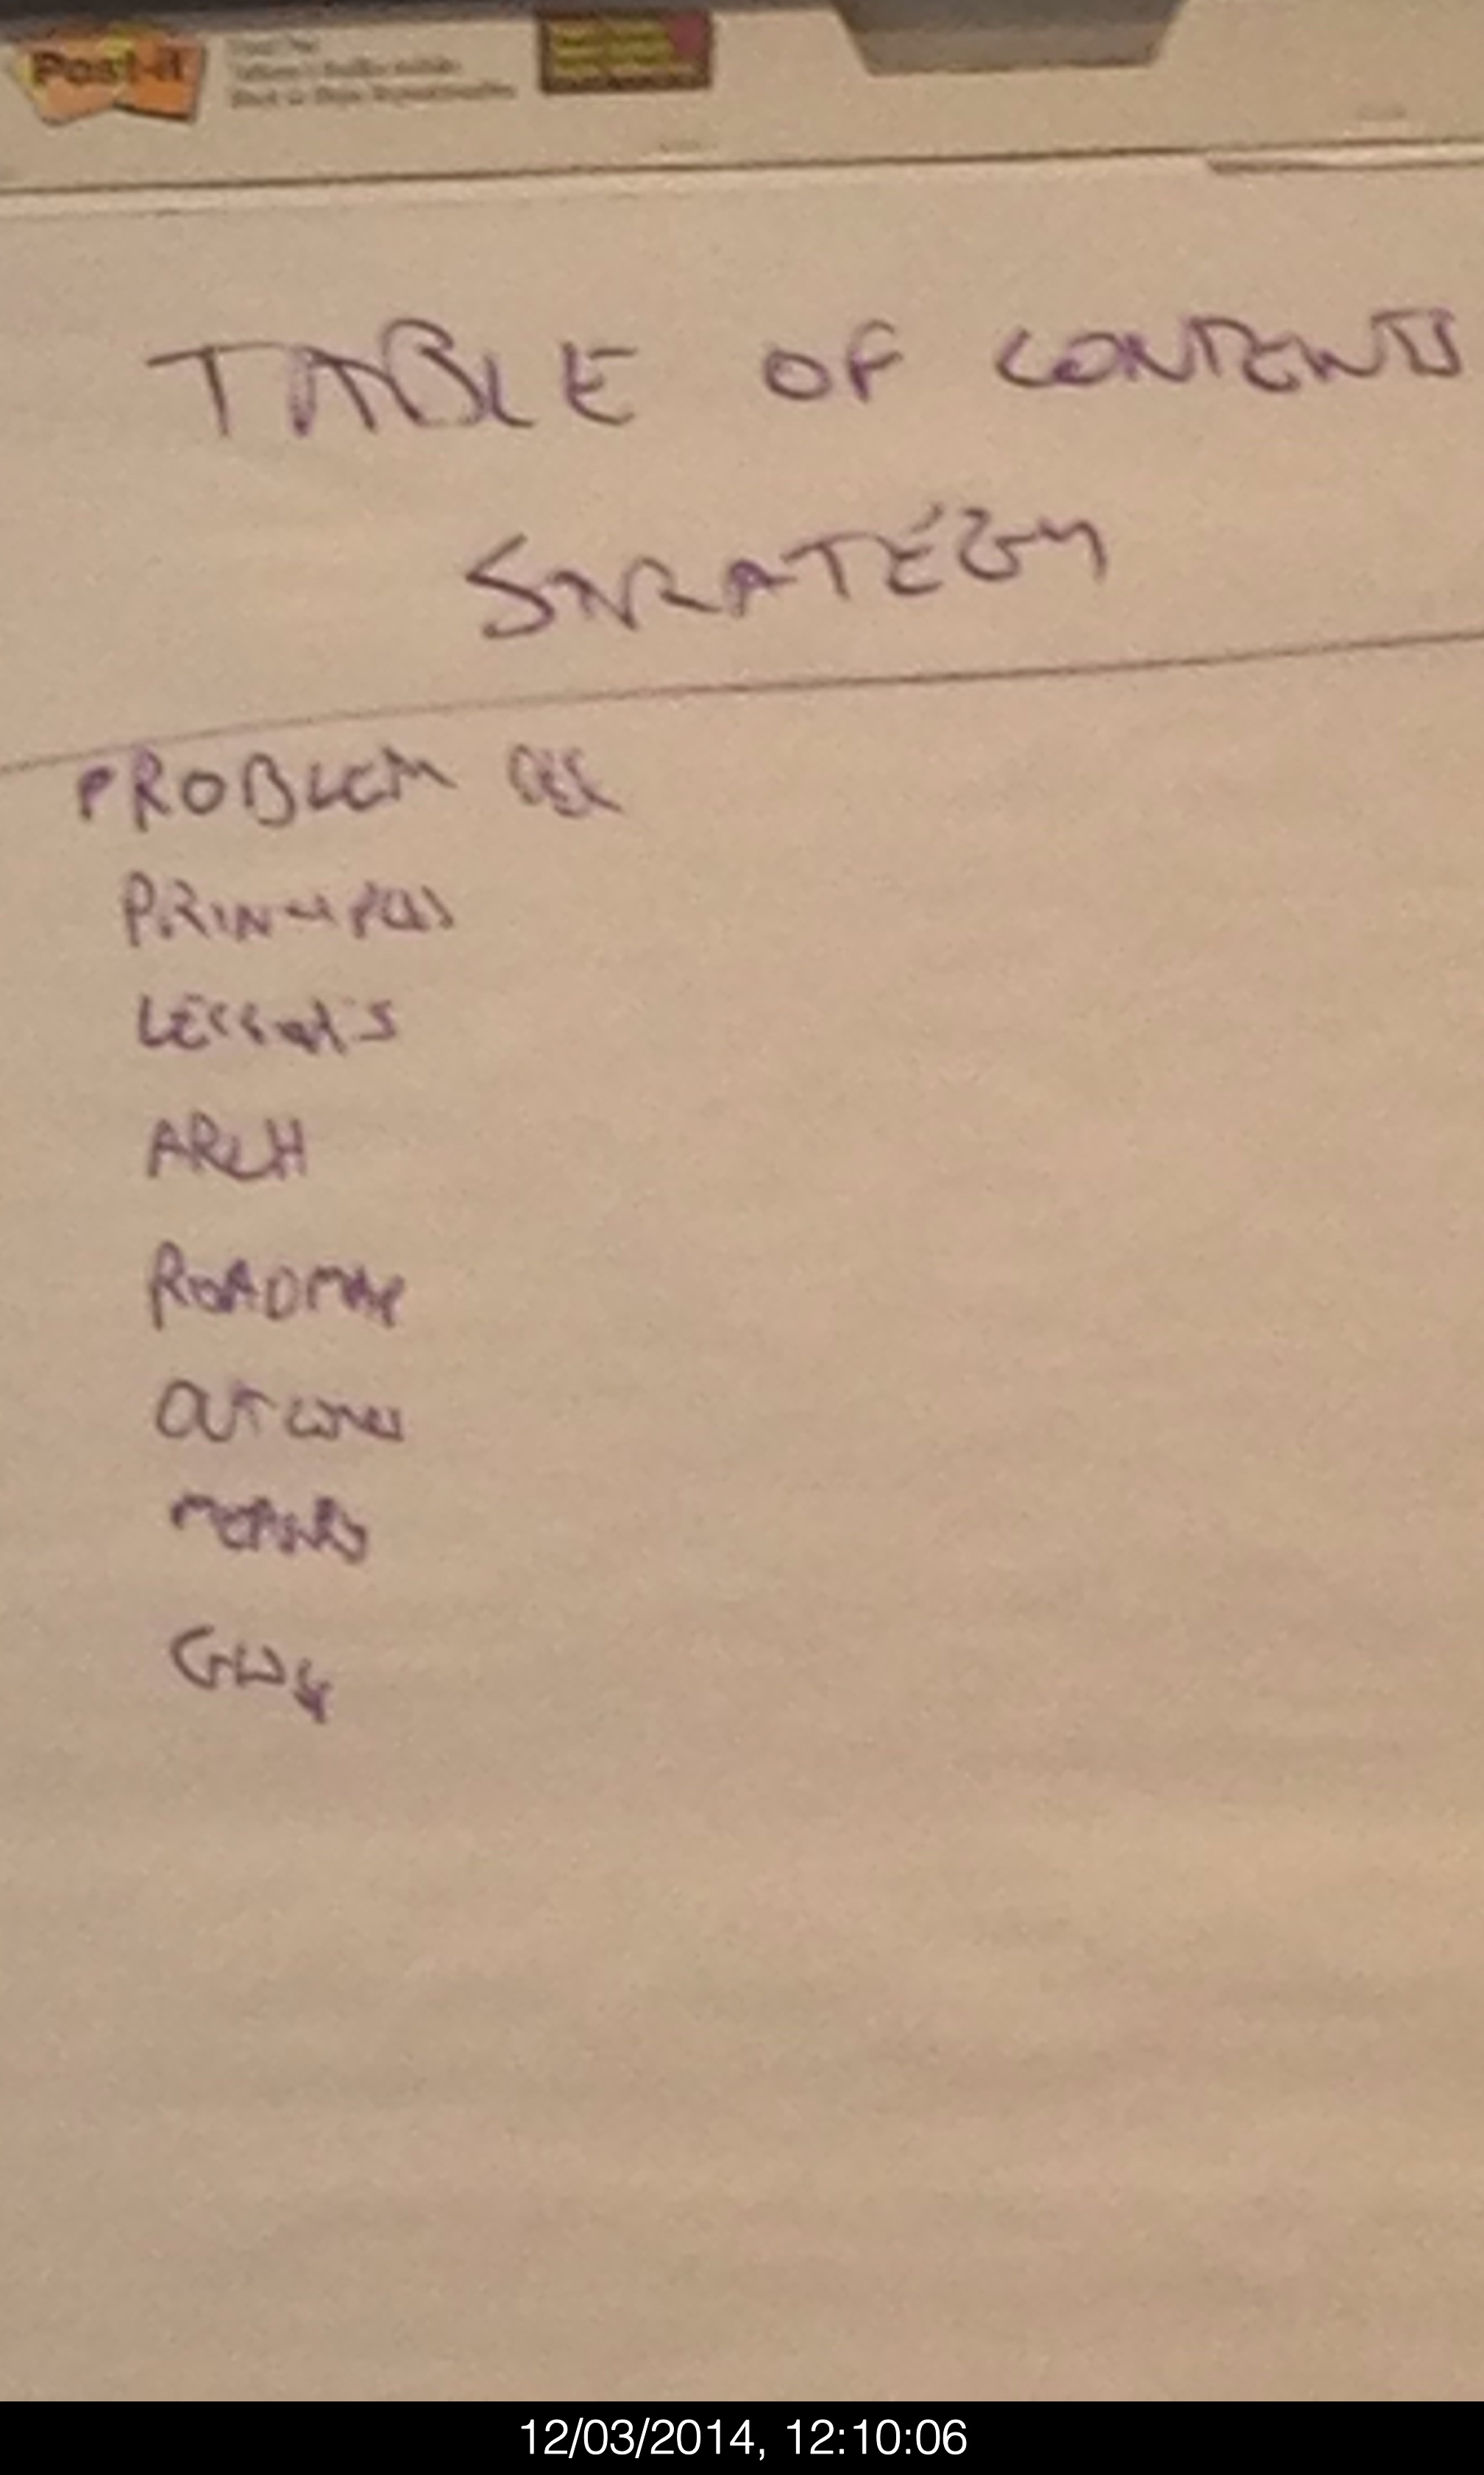 Post-it
TABLE OF CONTENTS
STRATEGY
PROBLEM
PRINCIPLES
LESSONS
ARCH
ROADMAP
OUTCOMES
12/03/2014, 12:10:06